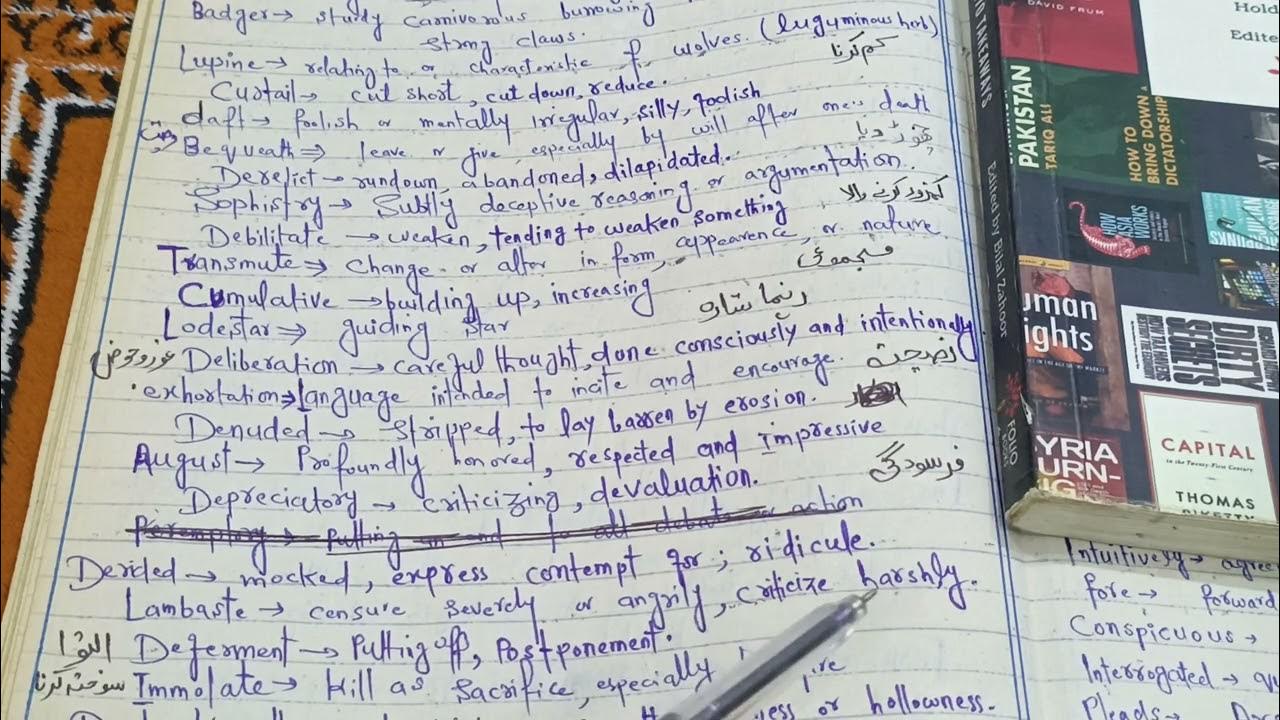 Badger → study carnivorous burrowing
strong claws.
Lupine → relating to or characteristic of wolves. (luguminous herb)
Curtail → cut short, cut down, reduce. کم کرنا
daft → foolish or mentally irregular, silly, foolish
Bequeath → leave or give especially by will after one's death
Derelict → rundown, abandoned, dilapidated. چھوڑ دینا
Sophistry → Subtly deceptive reasoning or argumentation.
Debilitate → weaken, tending to weaken something کمزور کرنے والا
Transmute → change or alter in form, appearence, or nature
Cumulative → building up, increasing مجموعی
Lodestar → guiding star رہنما ستارہ
غور و خوض Deliberation → careful thought, done consciously and intentionally
exhortation → language intended to incite and encourage. نصیحت
Denuded → stripped, to lay barren by erosion.
August → Profoundly honored, respected and impressive
Depreciatory → criticizing, devaluation. فرسودگی
Peremptory → Putting an end to all debate or action
Derided → mocked, express contempt for; ridicule.
Lambaste → censure severely or angrily, criticize harshly.
التوا Deferment → Putting off, Postponement.
سوختہ کرنا Immolate → Kill as sacrifice, especially
or hollowness.
Intuitively → agree
fore → forward
Conspicuous →
Interrogated →
Pleads →
TAKEAWAYS
Edited by Bilal Zahoor
FOLIO BOOKS
DAVID FRUM
Hold
Edite
PAKISTAN
TARIQ ALI
HOW TO BRING DOWN A DICTATORSHIP
HOW ASIA WORKS
uman
ights
DIRTY SECRETS
SYRIA
BURN-
CAPITAL
in the Twenty-First Century
THOMAS
PIKETTY